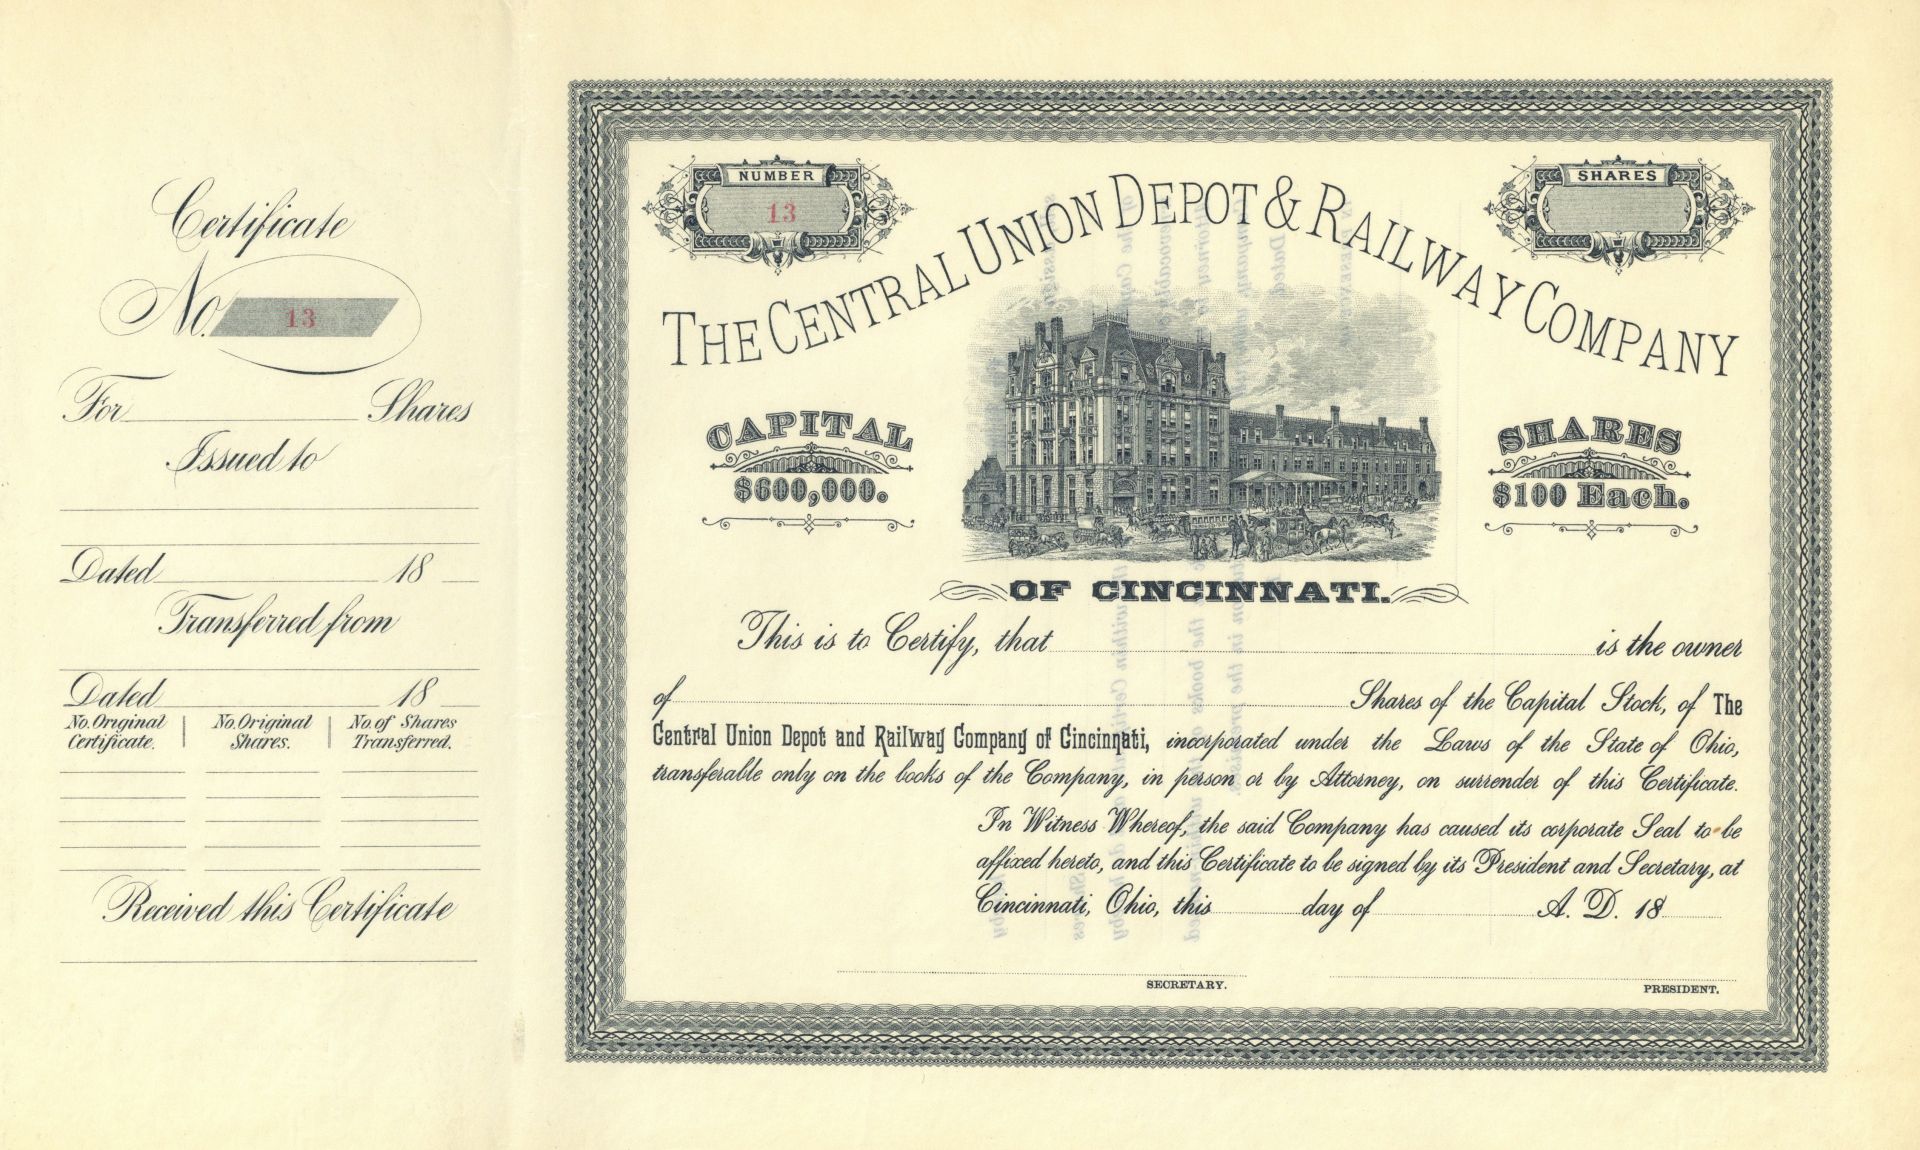 Certificate
No. 13
For Shares
Issued to
Dated 18
Transferred from
Dated 18
No. Original Certificate. No. Original Shares. No. of Shares Transferred.
Received this Certificate
NUMBER
13
SHARES
THE CENTRAL UNION DEPOT & RAILWAY COMPANY
CAPITAL
$600,000.
SHARES
$100 Each.
OF CINCINNATI.
This is to Certify, that is the owner
of Shares of the Capital Stock, of The
Central Union Depot and Railway Company of Cincinnati, incorporated under the Laws of the State of Ohio,
transferable only on the books of the Company, in person or by Attorney, on surrender of this Certificate.
In Witness Whereof, the said Company has caused its corporate Seal to be
affixed hereto, and this Certificate to be signed by its President and Secretary, at
Cincinnati, Ohio, this day of A. D. 18
SECRETARY.
PRESIDENT.